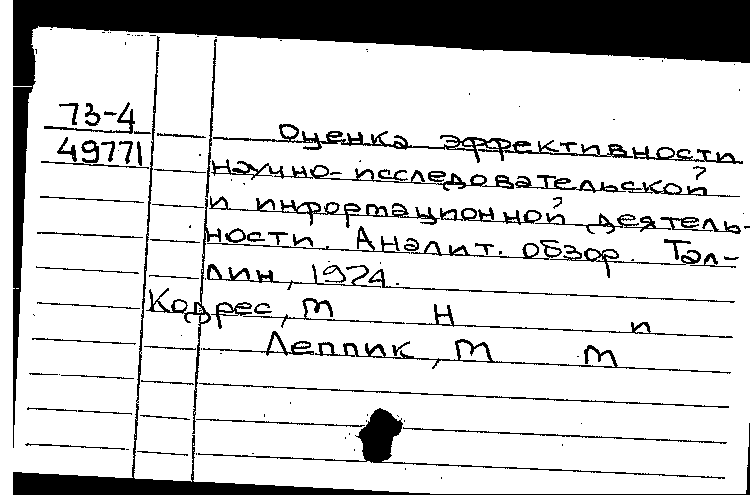 73-4
49771
Оценка эффективности
научно-исследовательской
и информационной деятель-
ности. Аналит. обзор. Тал-
лин, 1974.
Кодрес, т н и
Леппик, т т